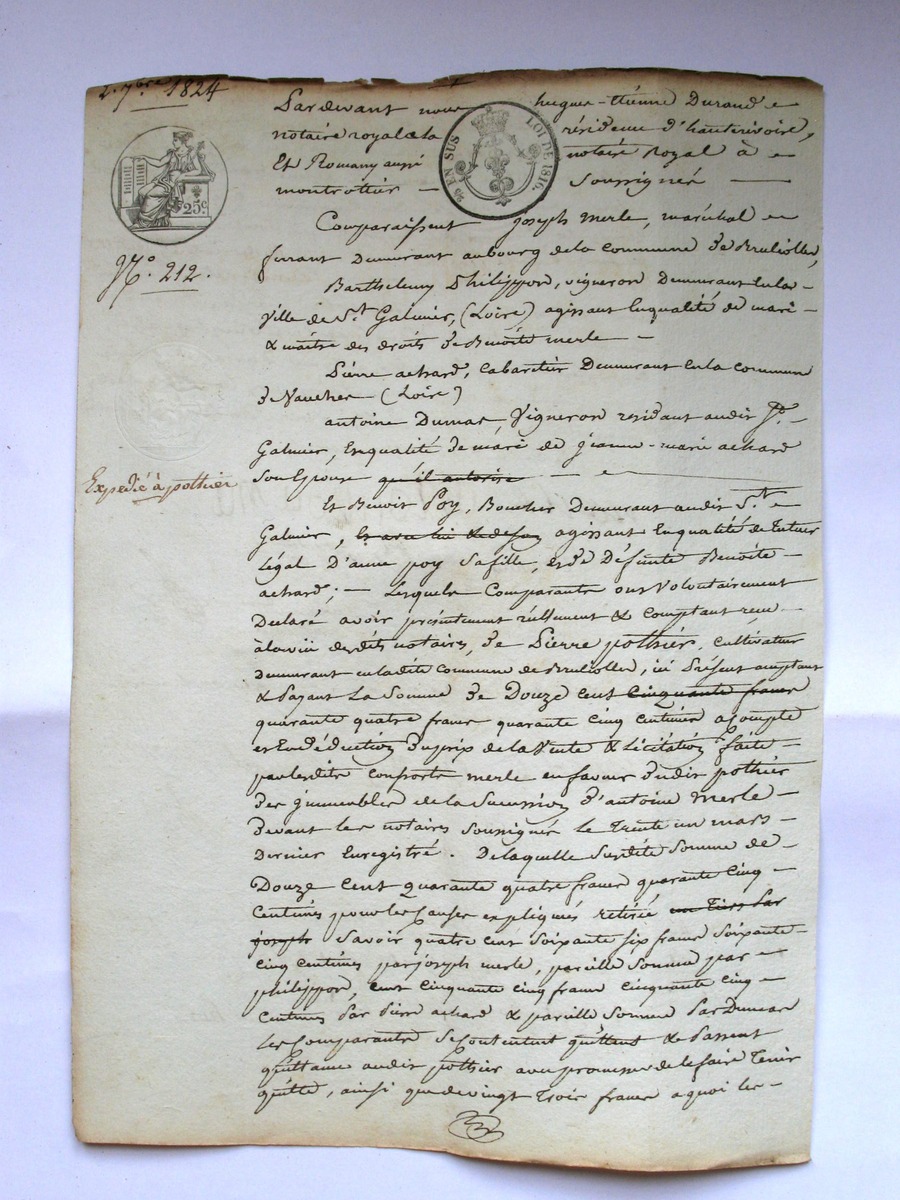 2. 7bre 1824
Pardevant nous hugues-étienne Durand
notaire royal a la résidence d'hauterivoire,
Et Romany aussi notaire Royal à
montrottier — Soussignés —
EN SUS LOI DE 1816.
25c
N.o 212.
Comparaissent joseph merle, maréchal
ferrant Demeurant au bourg de la commune de Brullioles,
Barthelemy Philippon, vigneron Demeurant en la
ville de St. Galmier, (Loire) agissant En qualité de mari
& maître des droits de Benoîte merle —
Pierre achard, Cabaretier Demeurant en la commune
de (Loire)
antoine Dumas, Vigneron residant audit St.
Galmier, En qualité de mari de jeanne-marie achard
Son Epouse qu'il autorise —
Expedié à pothier
Et Benoit Poy, Boucher Demeurant audit St.
Galmier, agissant En qualité de Tuteur
légal D'anne poy Sa fille, et de Défunte Benoîte
achard; — Lesquels Comparants ont Volontairement
Declaré avoir présentement réellement & comptant reçu
à la vue desdits notaires, de Pierre pothier, cultivateur
demeurant en ladite Commune de Brullioles, ici Présent acceptant
& Payant La Somme de Douze cent cinquante francs
quarante quatre francs quarante cinq centimes acompte
et En déduction du prix de la Vente & Licitation faite
par lesdits consorts merle en faveur dudit pothier
des jmmeubles de la Succession d'antoine Merle
devant les notaires soussignés le Trente un mars
dernier Enregistré. De laquelle Susdite Somme de
Douze Cent quarante quatre francs quarante cinq
Centimes pour les Causes expliquées retirée un Tiers Par
joseph Savoir quatre cent Soixante six francs Soixante
cinq centimes par joseph merle, pareille Somme par
philippon, Cent cinquante cinq francs cinquante cinq
Centimes Par Pierre achard & pareille Somme Par Dumas
les Comparants Se Contentent quittent & Passent
quittance audit pothier avec promesse de le faire Tenir
quitte, ainsi que de vingt Trois francs a quoi les